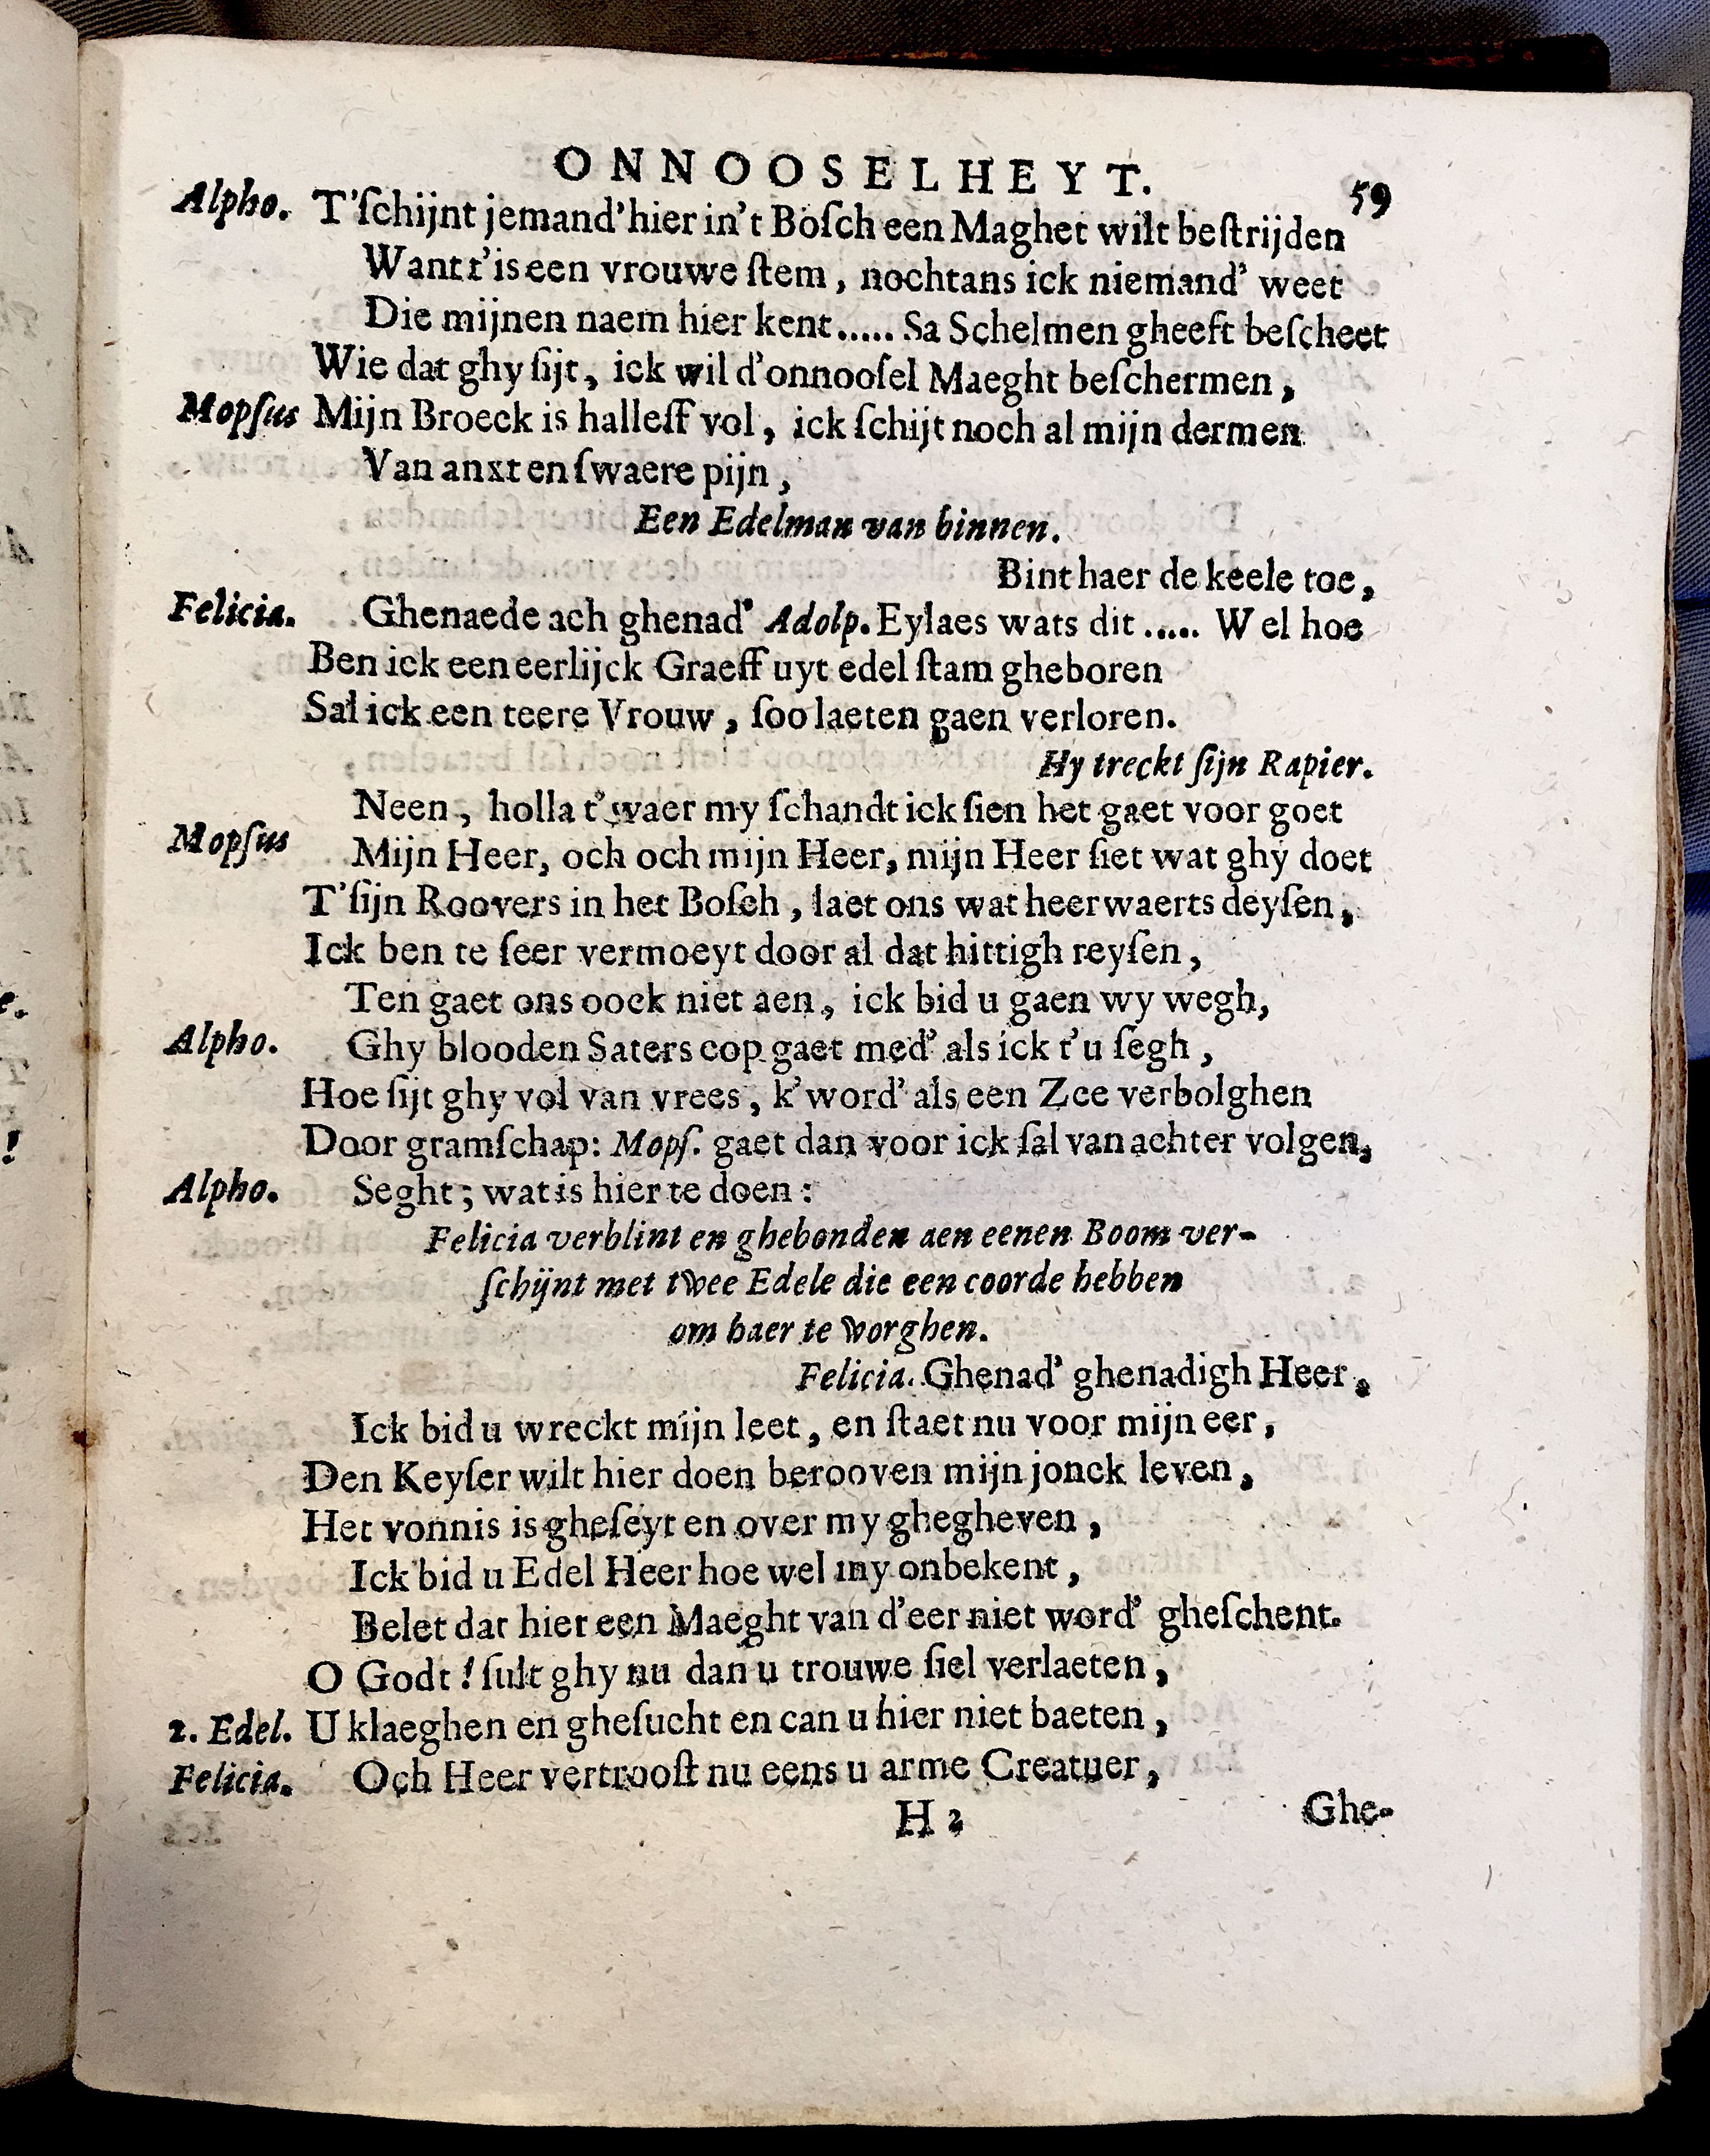 ONNOOSELHEYT. 59
Alpho. T'ſchijnt jemand'hier in't Boſch een Maghet wilt beſtrijden
Want t'is een vrouwe ſtem, nochtans ick niemand' weet
Die mijnen naem hier kent..... Sa Schelmen gheeft beſcheet
Wie dat ghy ſijt, ick wil d'onnooſel Maeght beſchermen,
Mopſus Mijn Broeck is halleff vol, ick ſchijt noch al mijn dermen
Van anxt en ſwaere pijn,
Een Edelman van binnen.
Bint haer de keele toe,
Felicia. Ghenaede ach ghenad' Adolp. Eylaes wats dit..... Wel hoe
Ben ick een eerlijck Graeff uyt edel ſtam gheboren
Sal ick een teere Vrouw, ſoo laeten gaen verloren.
Hy treckt ſijn Rapier.
Neen, holla t'waer my ſchandt ick ſien het gaet voor goet
Mopſus Mijn Heer, och och mijn Heer, mijn Heer ſiet wat ghy doet
T'ſijn Roovers in het Boſch, laet ons wat heerwaerts deyſen,
Ick ben te ſeer vermoeyt door al dat hittigh reyſen,
Ten gaet ons oock niet aen, ick bid u gaen wy wegh,
Alpho. Ghy blooden Saters cop gaet med' als ick t'u ſegh,
Hoe ſijt ghy vol van vrees, k'word' als een Zee verbolghen
Door gramſchap: Mopſ. gaet dan voor ick ſal van achter volgen,
Alpho. Seght; wat is hier te doen:
Felicia verblint en ghebonden aen eenen Boom ver-
ſchijnt met twee Edele die een coorde hebben
om haer te worghen.
Felicia. Ghenad' ghenadigh Heer,
Ick bid u wreckt mijn leet, en ſtaet nu voor mijn eer,
Den Keyſer wilt hier doen berooven mijn jonck leven,
Het vonnis is gheſeyt en over my ghegheven,
Ick bid u Edel Heer hoe wel my onbekent,
Belet dat hier een Maeght van d'eer niet word' gheſchent.
O Godt! ſult ghy nu dan u trouwe ſiel verlaeten,
2. Edel. U klaeghen en gheſucht en can u hier niet baeten,
Felicia. Och Heer vertrooſt nu eens u arme Creatuer,
H 2 Ghe-